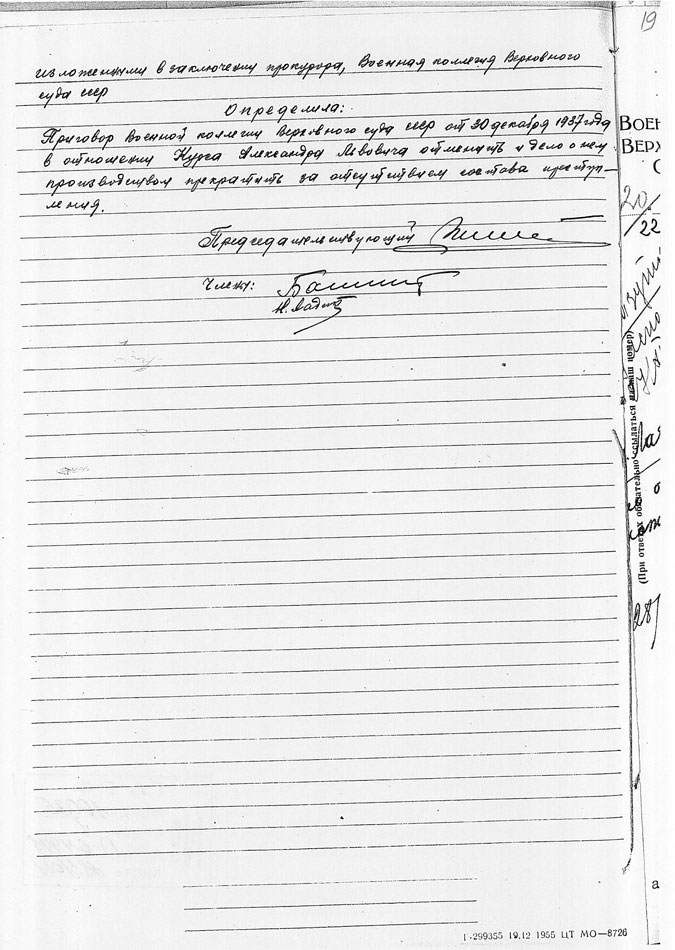 19
изложенными в заключении прокурора, Военная коллегия Верховного
суда СССР
Определила:
Приговор Военной коллегии Верховного суда СССР от 30 декабря 1937 года
в отношении Александра Львовича отменить и дело о нем
производством прекратить за отсутствием состава преступ-
ления.
Председательствующий
Члены:
ВОЕН
ВЕРХ
С
20
22
(При ответах обязательно ссылаться на наш номер)
28/
а
Г-299355 19.12 1955 ЦТ МО—8726